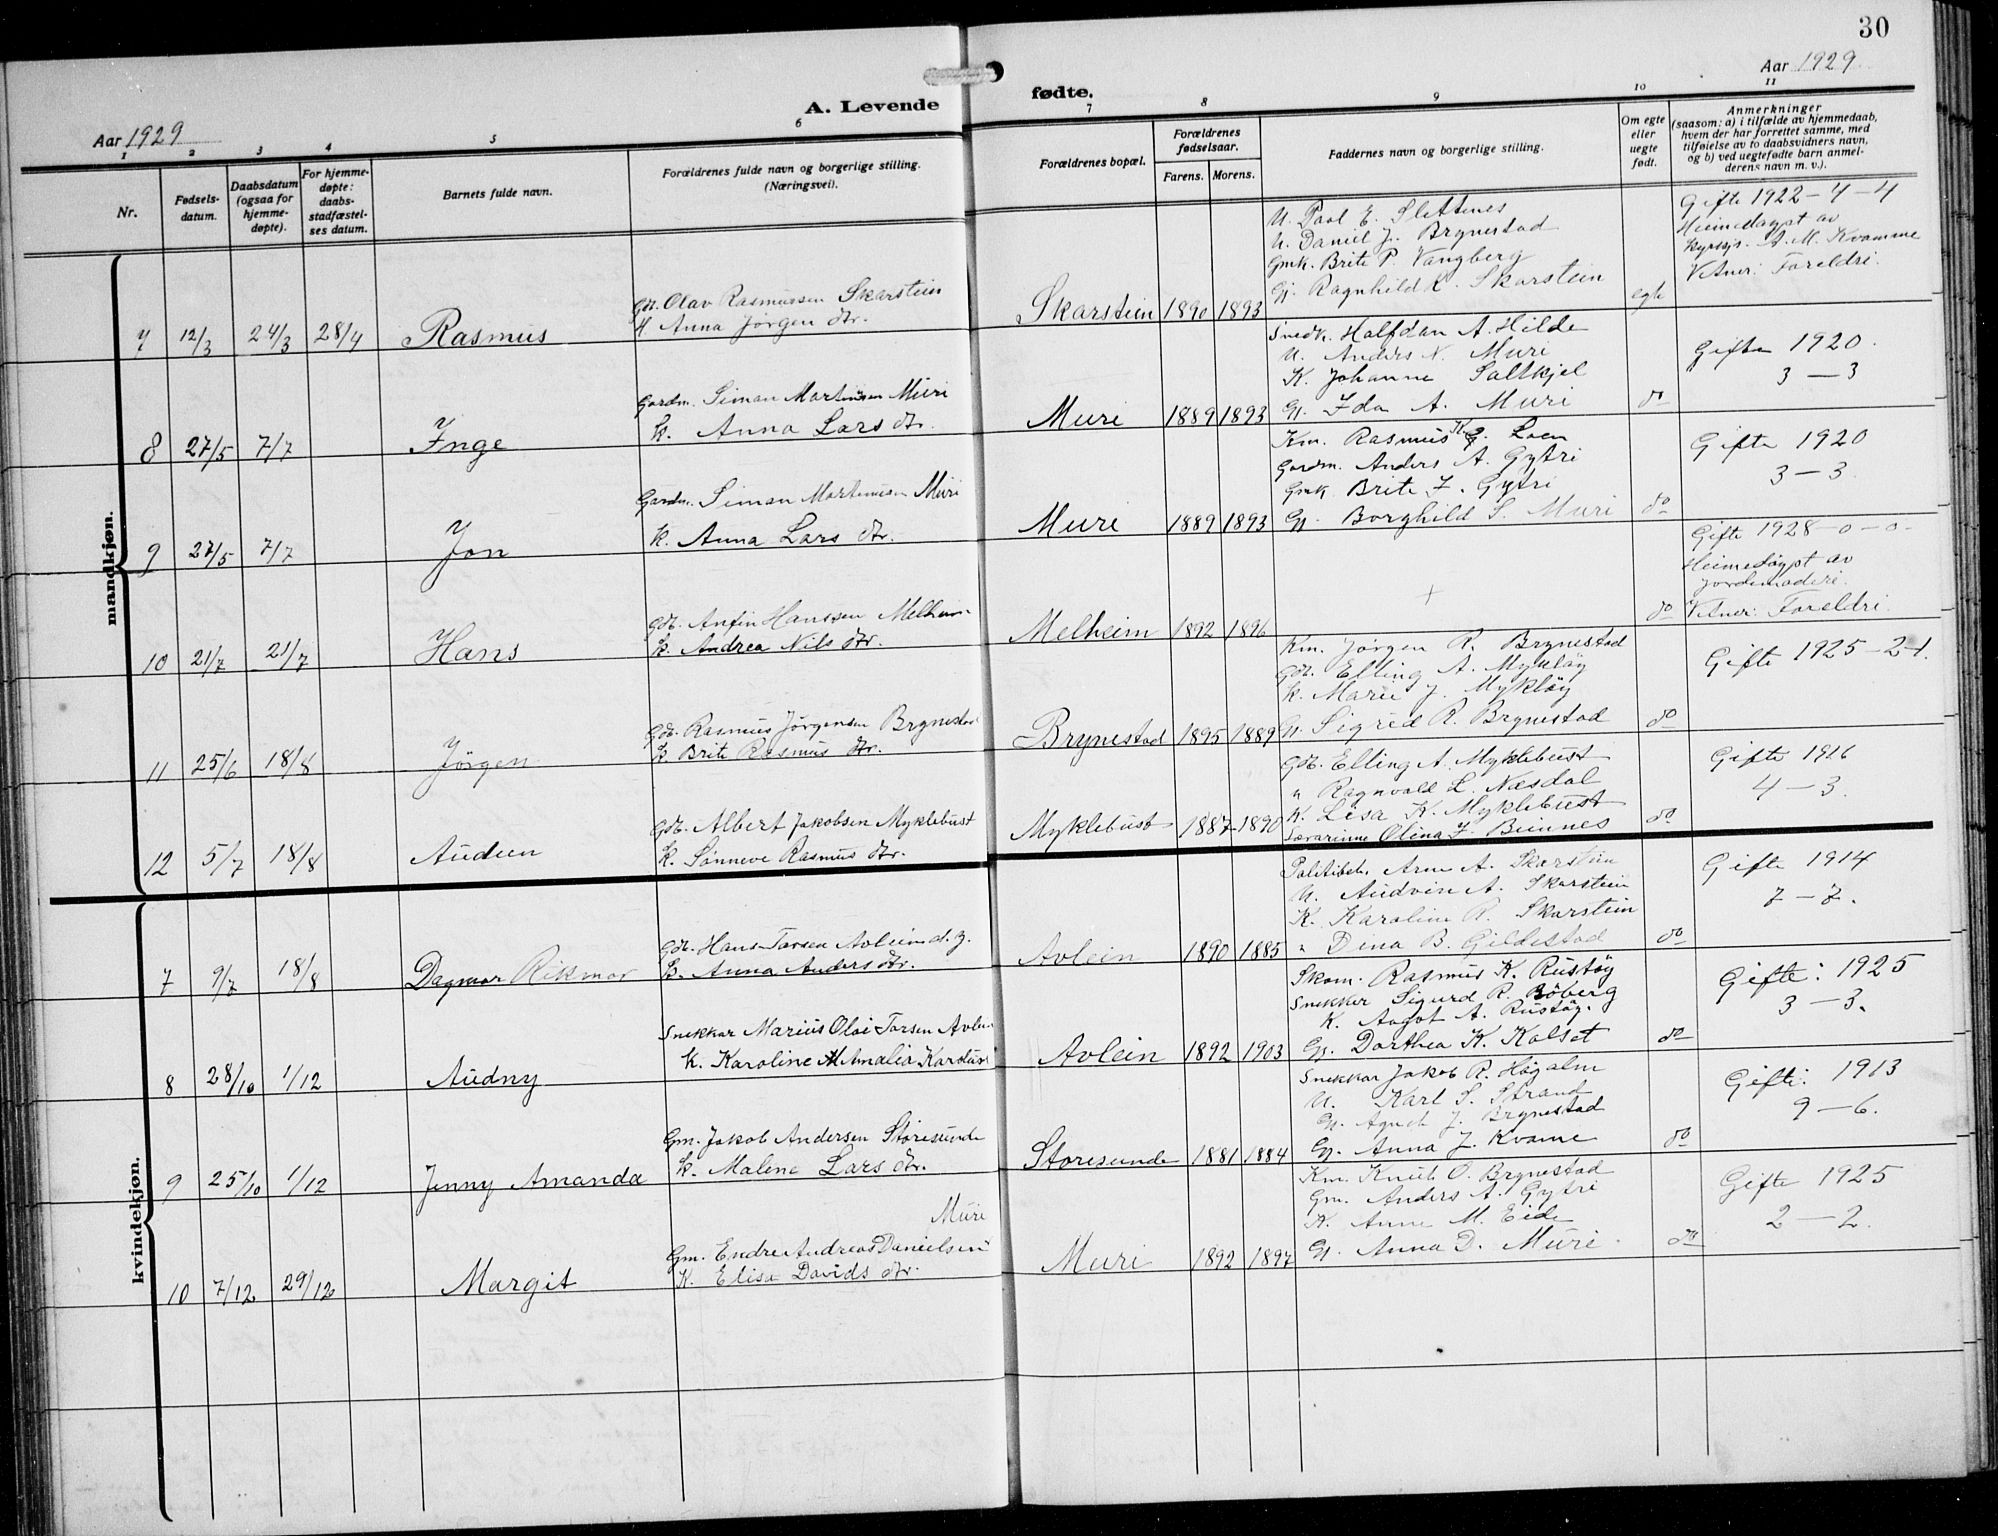 30
Aar 1929
A. Levende
fødte.
Aar 1929
1 2 3 4 5 6 7 8 9 10 11
Nr.
Fødsels-
datum.
Daabsdatum
(ogsaa for
hjemme-
døpte).
For hjemme-
døpte:
daabs-
stadfæstel-
ses datum.
Barnets fulde navn.
Forældrenes fulde navn og borgerlige stilling.
(Næringsvei).
Forældrenes bopæl.
Forældrenes
fødselsaar.
Farens. Morens.
Faddernes navn og borgerlige stilling.
Om egte
eller
uegte
født.
Anmerkninger
(saasom: a) i tilfælde av hjemmedaab,
hvem der har forrettet samme, med
tilføielse av to daabsvidners navn,
og b) ved uegtefødte barn anmel-
derens navn m. v.).
mandkjøn.
7 12/3 24/3 28/4 Rasmus
Gdb. Olav Rasmussen Skarstein
K Anna Jørgen dtr.
Skarstein 1890 1893
U. Paul E. Slettenes
U. Daniel J. Brynestad
Gmk. Brite P. Vangberg
Gj. Ragnhild R. Skarstein
egte
Gifte 1922-4-4
Heimedøypt av
kyrkjs. A. M. Kvamme
Vitner: Foreldri.
8 27/5 7/7 Inge
Gardm. Simon Martinsen Muri
k. Anna Lars dtr.
Muri 1889 1893
Snedk. Halfdan A. Hilde
U. Anders N. Muri
K. Johanne Saltkjel
Gj. Ida A. Muri
do
Gifte 1920.
3 - 3
9 27/5 7/7 Jon
Gardm. Simon Martinsen Muri
k. Anna Lars dtr.
Muri 1889 1893
Km. Rasmus K. G. Loen
Gardm. Anders A. Gytri
Gmk. Brite J. Gytri
Gj. Borghild S. Muri
do
Gifte 1920
3 - 3.
10 21/7 21/7 Hans
Gdb. Anfin Hanssen Melheim
k. Andrea Nils dtr.
Melheim 1892 1896
+
do
Gifte 1928-0-0-
Heimedøypt av
jordemoderi.
Vitner: Foreldri.
11 25/6 18/8 Jörgen
Gdb. Rasmus Jørgensen Brynestad
k. Brite Rasmus dtr.
Brynestad 1895 1889
Km. Jørgen R. Brynestad
Gdb. Elling A. Mykløy
k. Marie J. Mykløy
Gj. Sigrid R. Brynestad
do
Gifte 1925-2-1.
12 5/7 18/8 Audun
Gdb. Albert Jakobsen Myklebust
k. Sønneve Rasmus dtr.
Myklebust 1887 1890
Gdb. Elling A. Myklebust
" Ragnvald L. Nesdal
k. Lisa K. Myklebust
Lærarinne Olina J. Binnes
do
Gifte 1916
4 - 3.
kvindekjøn.
7 9/7 18/8 Dagmar Rikmor
Gdb. Hans Torsen Avlein d. y.
k. Anna Anders dtr.
Avlein 1890 1885
Politibet. Arne A. Skarstein
U. Audvin A. Skarstein
K. Karoline R. Skarstein
" Dina B. Gildestad
do
Gifte 1914
7 - 7.
8 28/10 1/12 Audny
Snekkar Marius Oloi Torsen Avlein
k. Karoline Amalia Karolus
Avlein 1892 1903
Skom. Rasmus K. Rustøy
Snekker Sigurd R. Böberg
K. Aagot A. Rustøy.
Gj. Dorthea K. Kolset
do
Gifte: 1925
3 - 3.
9 25/10 1/12 Jenny Amanda
Gm. Jakob Andersen Storesunde
k. Malene Lars dtr.
Storesunde 1881 1884
Snekkar Jakob R. Høgalm
U. Karl S. Strand
Gj. Agnet J. Brynestad
Gj. Anna J. Kvame
do
Gifte: 1913
9 - 6.
10 7/12 29/12 Margit
Muri
Gm. Endre Andreas Danielsen
K. Elisa Davids dtr.
Muri 1892 1897
Km. Knut O. Brynestad
Gm. Anders A. Gytri
K. Anne M. Eide
Gj. Anna D. Muri.
do
Gifte 1925
2 - 2.